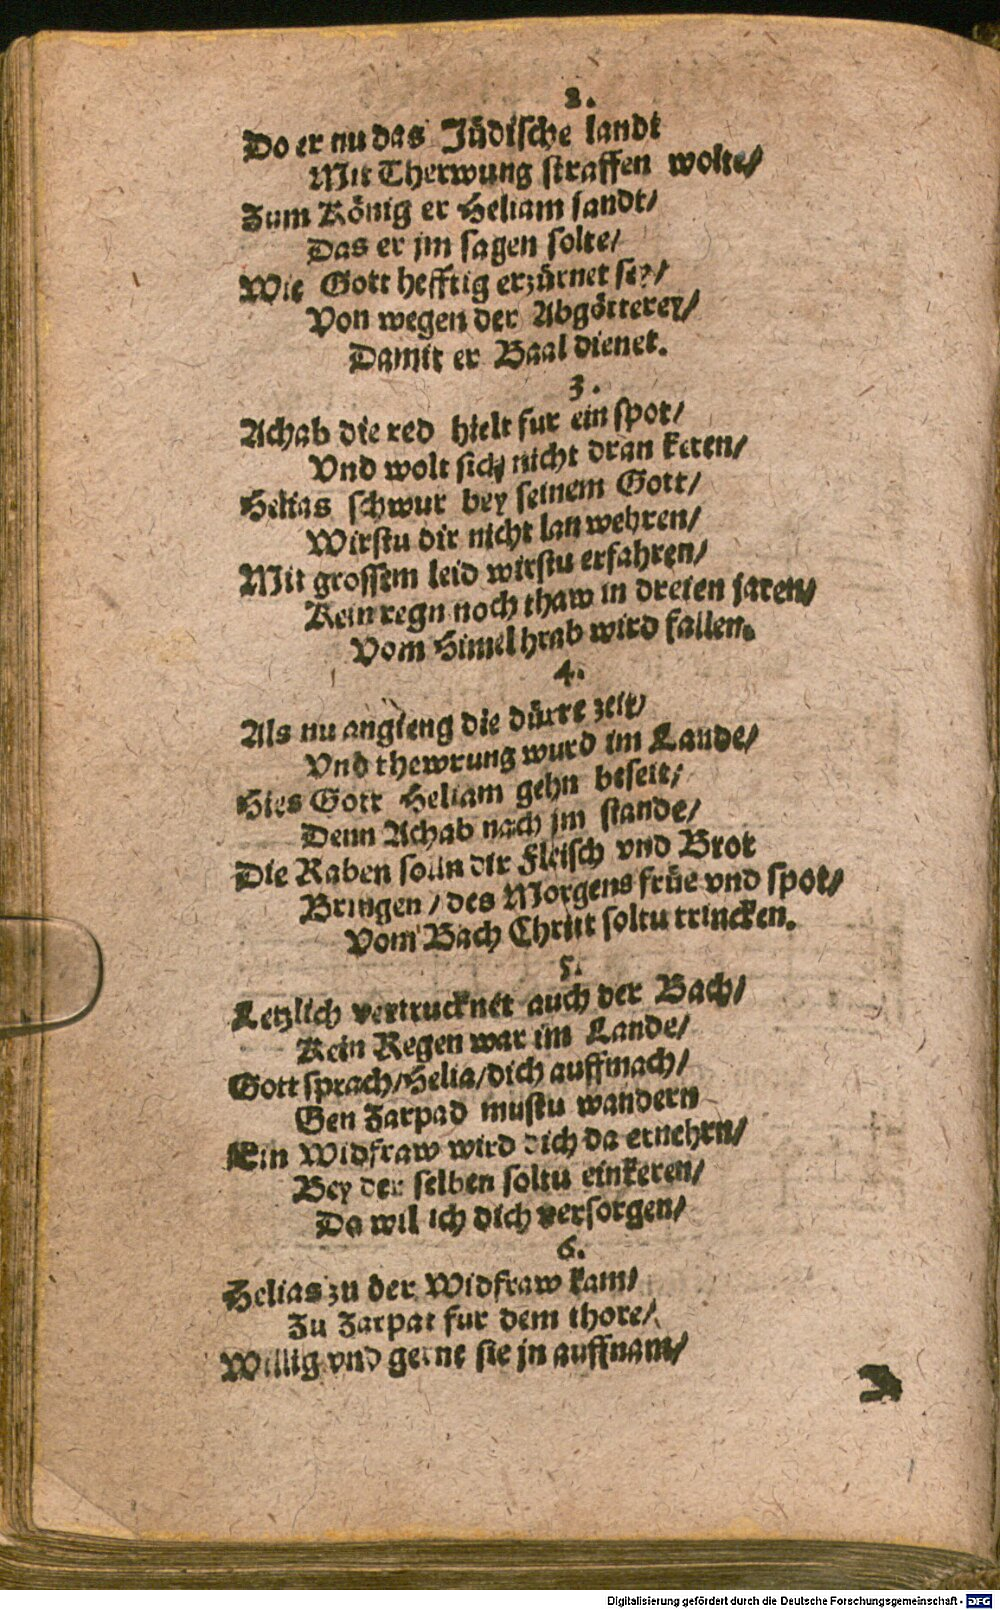 2.
Do er nu das Jüdische landt
Mit Therwung straffen wolte/
Zum König er Heliam sandt/
Das er jm sagen solte/
Wie Gott hefftig erzürnet sey/
Von wegen der Abgötterey/
Damit er Baal dienet.
3.
Achab die red hielt fur ein spot/
Vnd wolt sich nicht dran keren/
Helias schwur bey seinem Gott/
Wirstu dir nicht lan wehren/
Mit grossem leid wirstu erfahren/
Kein regn noch thaw in dreien jaren/
Vom Himel hrab wird fallen.
4.
Als nu angieng die dürre zeit/
Vnd thewrung wurd im Lande/
Hies Gott Heliam gehn beseit/
Denn Achab nach jm stande/
Die Raben solln dir Fleisch vnd Brot
Bringen/ des Morgens früe vnd spot/
Vom Bach Chriit soltu trincken.
5.
Letzlich vertrucknet auch der Bach/
Kein Regen war im Lande/
Gott sprach/ Helia/ dich auffmach/
Gen Zarpad mustu wandern
Ein Widfraw wird dich da ernehrn/
Bey der selben soltu einkeren/
Da wil ich dich versorgen/
6.
Helias zu der Widfraw kam/
Zu Zarpat fur dem thore/
Willig vnd gerne sie jn auffnam/
Digitalisierung gefördert durch die Deutsche Forschungsgemeinschaft - DFG